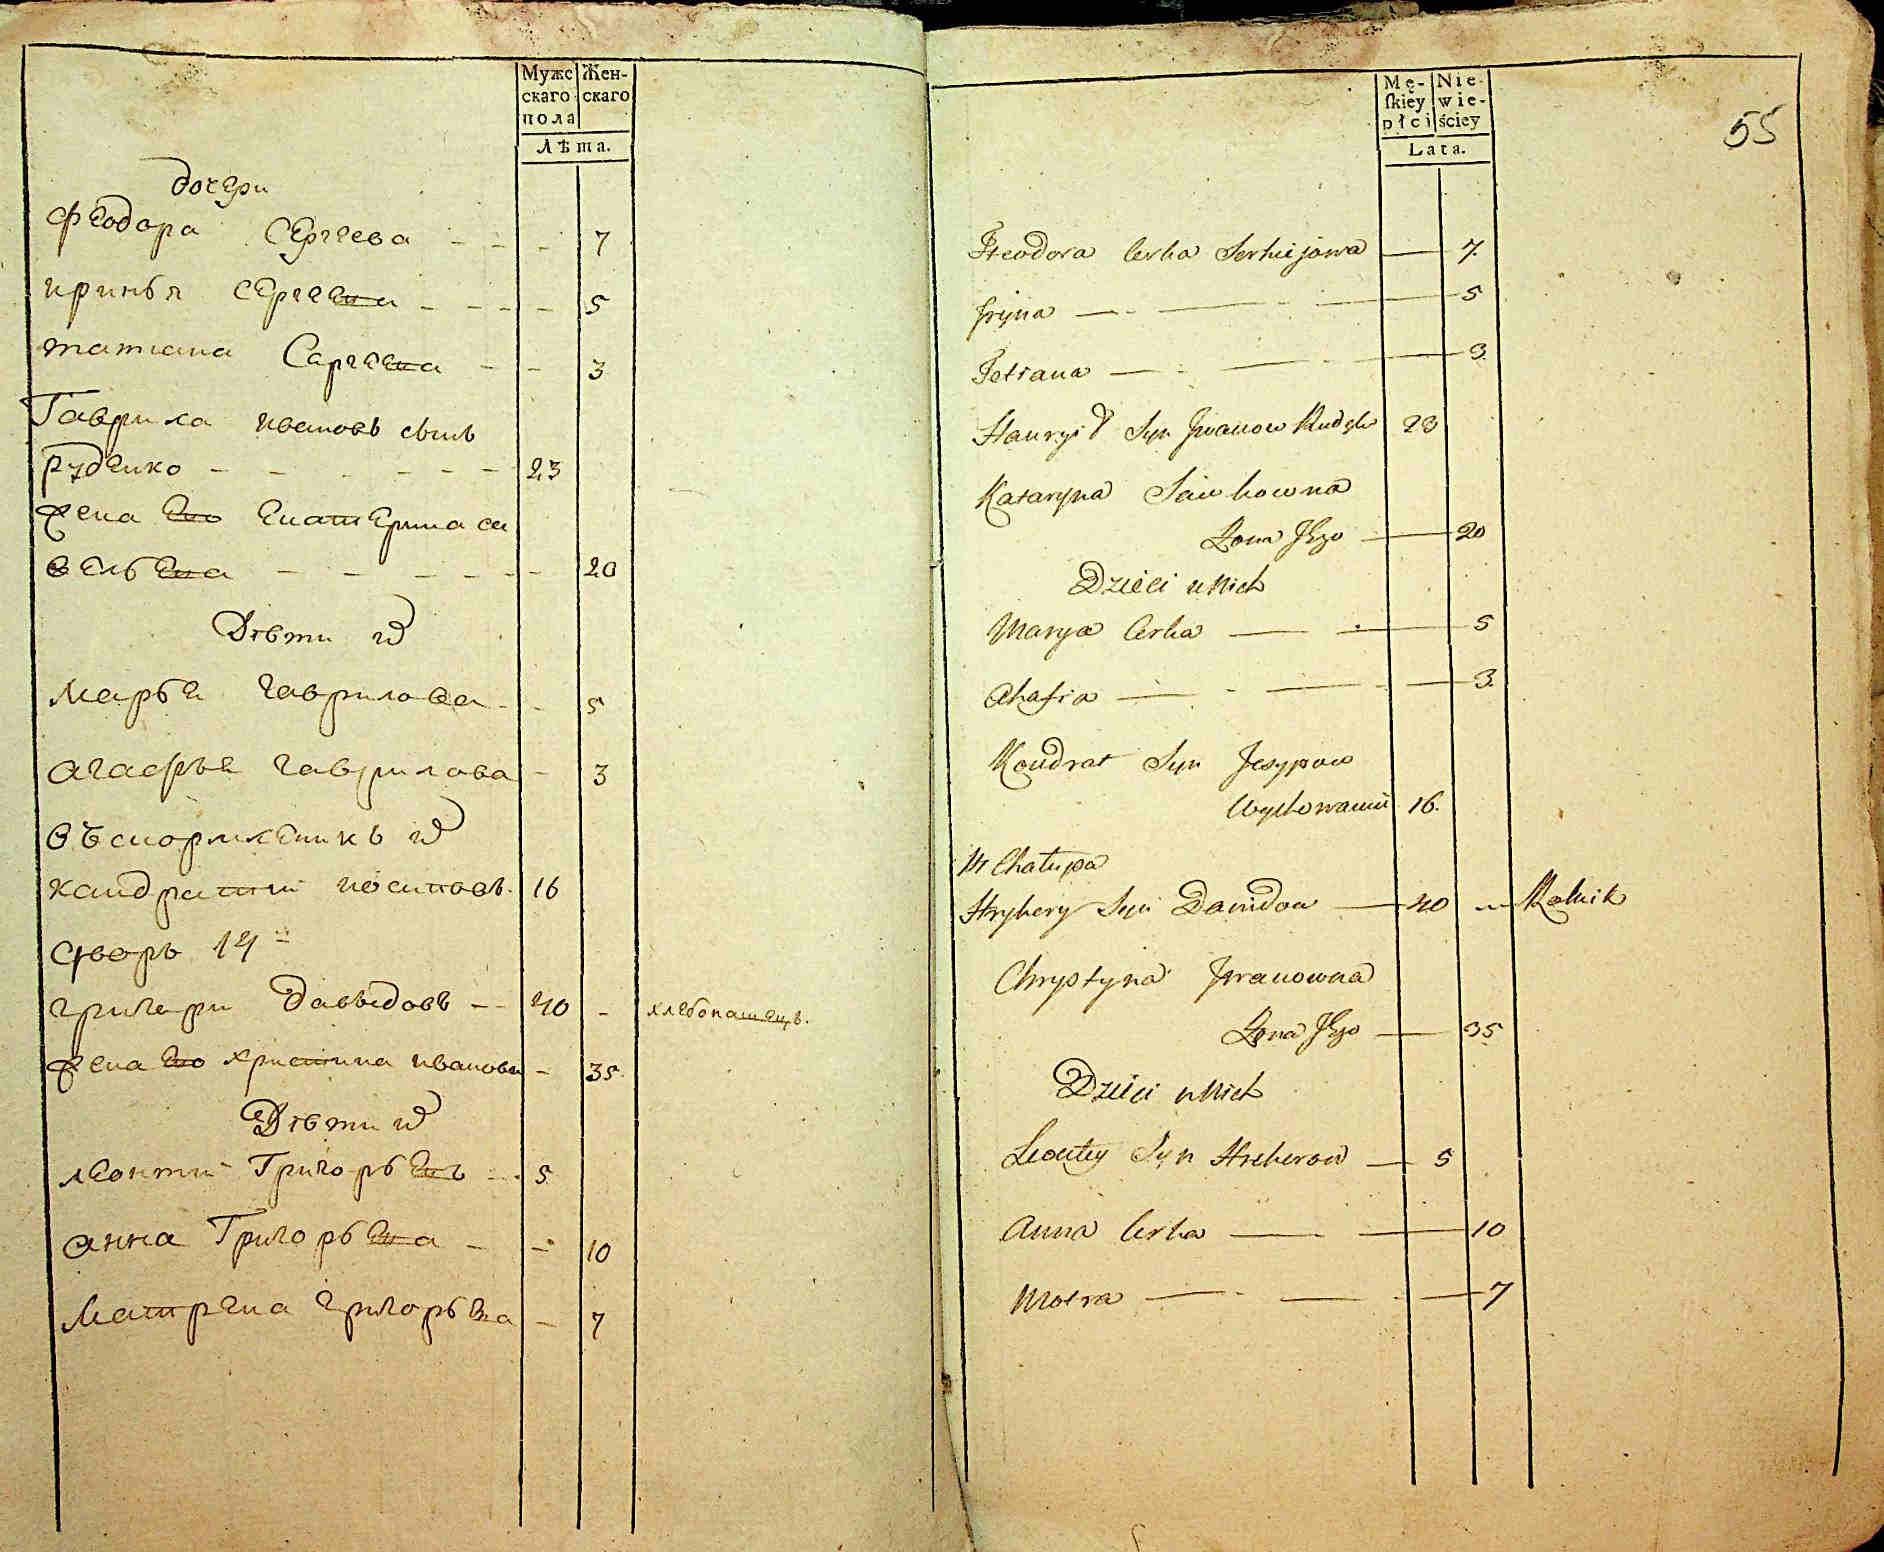 Мужс Жен-
скаго скаго
пола
Лѣта.
дочери
Феодора Сергеева - - - 7
иринья сергеева - - - - 5
татиана Саргеева - - 3
Гаврила ивановъ сынъ
руденко - - - - - - 23
жена его екатерина са
вельева - - - - - - 20
Дѣти их
Марья гаврилова - - 5
агафья гаврилова - 3
въскормленикъ их
кандратий иосиповъ. 16
дворъ 14й
григори давыдовъ - - 40 - хлебопашецъ.
жена его христина иванова - 35
Дѣти их
леонтий Григорьевъ - - 5
анна Григорьева - - 10
Матрена григорьева - 7
Mę- Nie-
ſkiey wie-
płci ściey
Lata.
55
Fteodora Corka Serhiejowa — 7.
Jryna — - — - — 5
Tetiana — - — - — 3
Hauryło Syn Jwanow Rudyk 23
Katarjna Sawkowna
Żona Jego — 20
Dzieci u Nich
Marya Corka — - — 5
Ahafia — - — - — 3
Kondrat Syn Jesypow
Wychowaniec 16.
14 Chałupa
Hryhory Syn Dawidow — 40 - Rolnik
Chrystyna Jwanowna
Żona Jego — 35
Dzieci u Nich
Leontey Syn Hreherow — 5
Anna Corka — — 10
Motra — - — - — 7